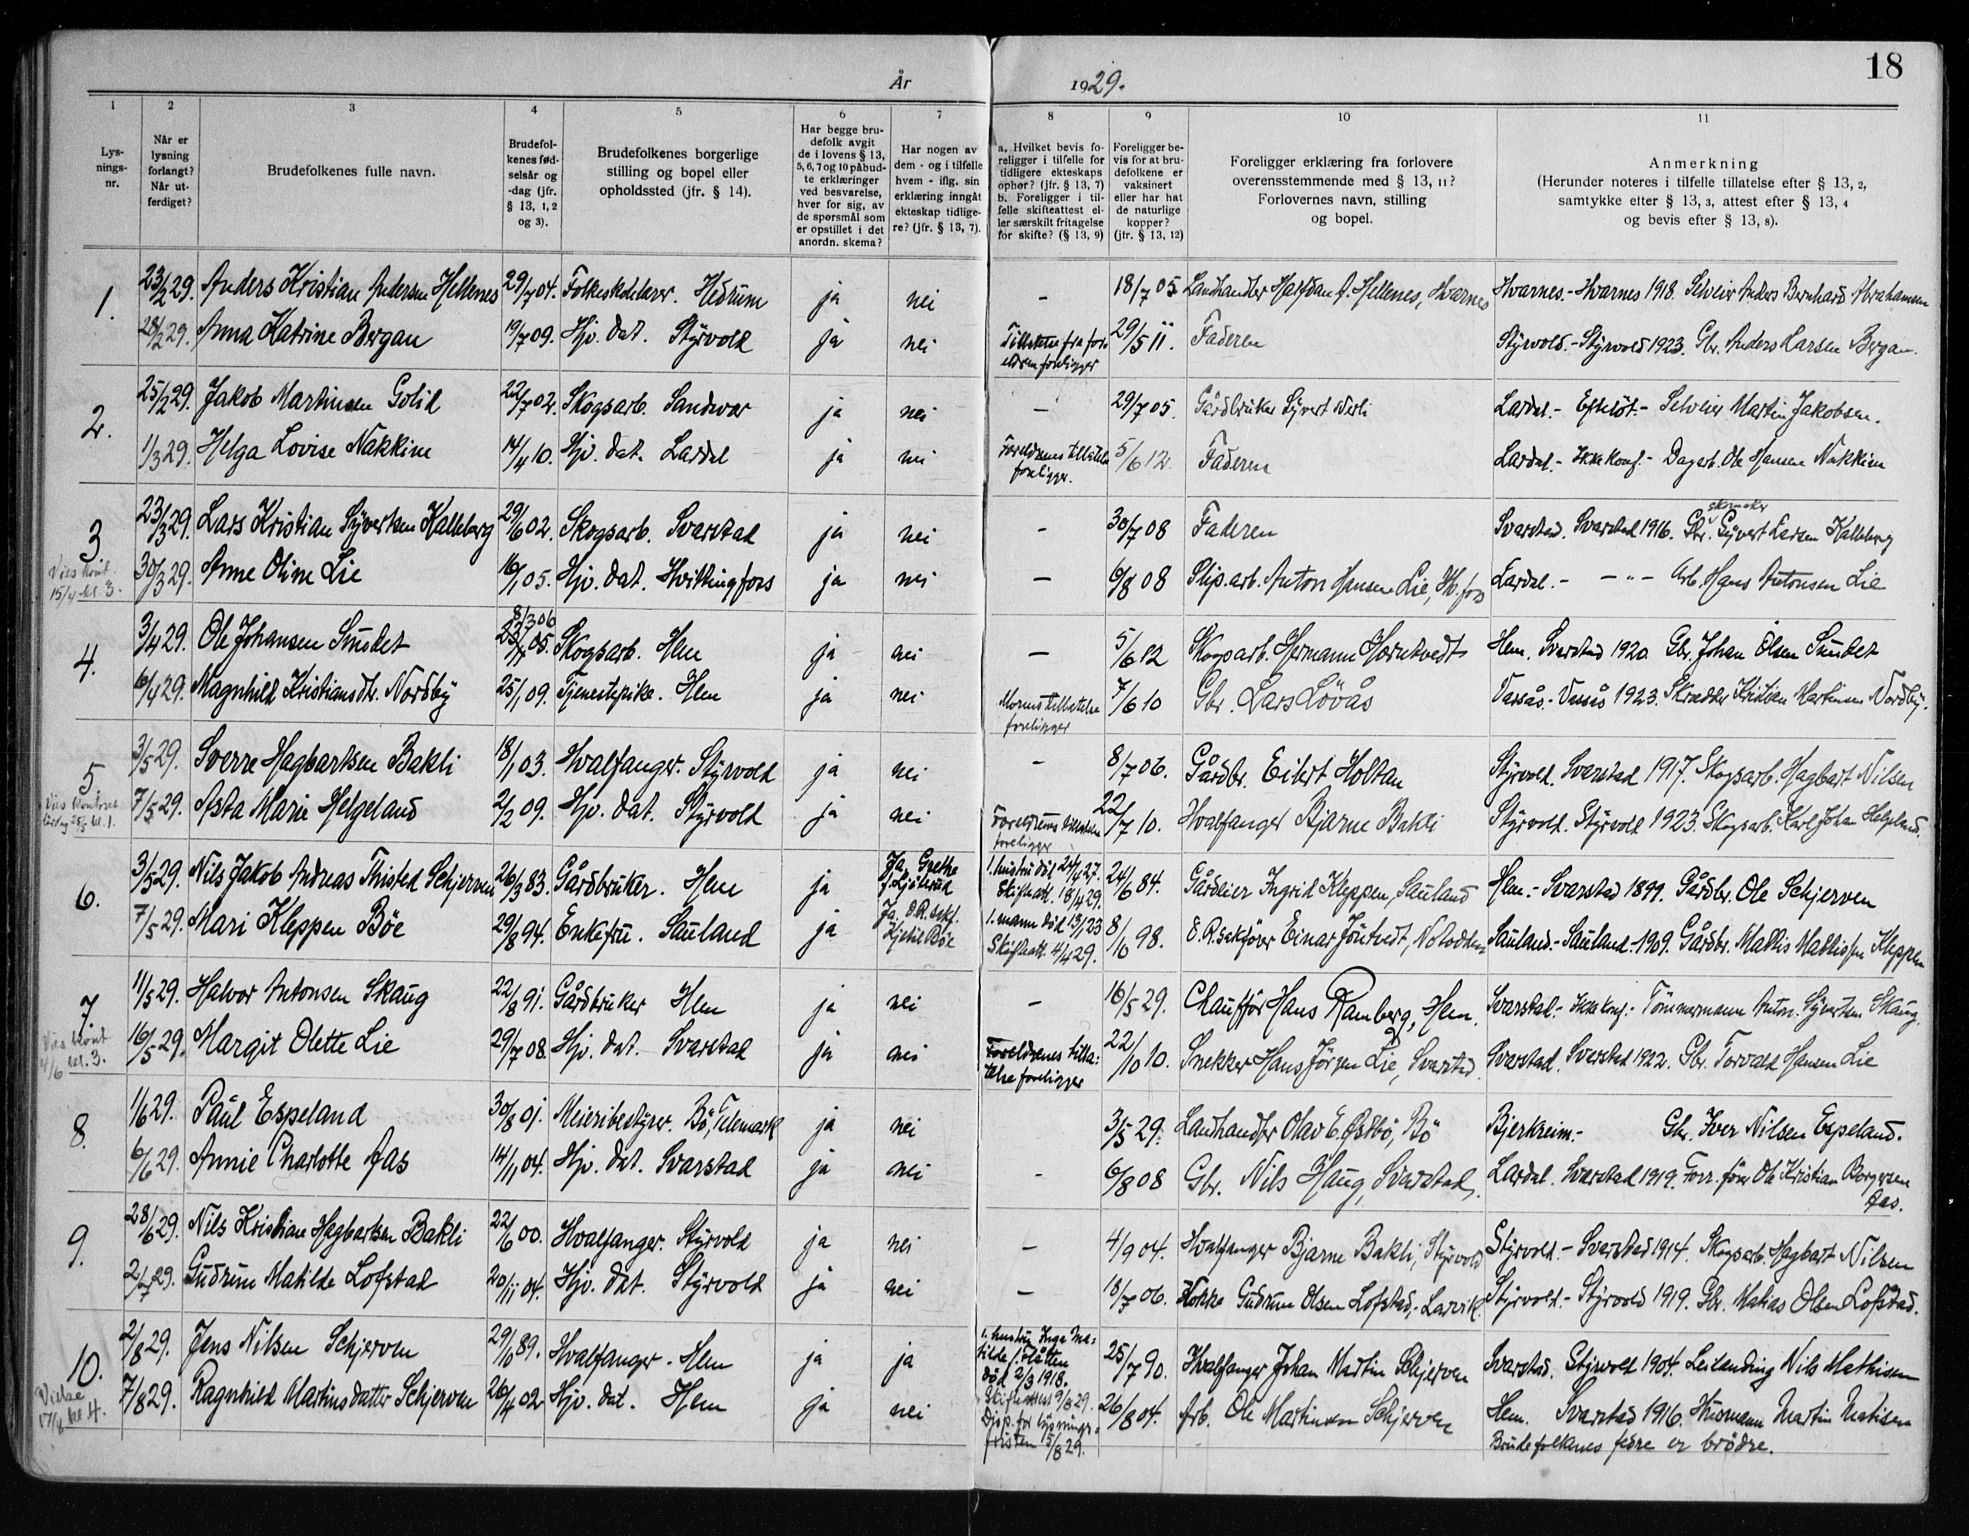 18
År 1929.
1 2 3 4 5 6 7 8 9 10 11
Lys-
nings-
nr.
Når er
lysning
forlangt?
Når ut-
ferdiget?
Brudefolkenes fulle navn.
Brudefol-
kenes fød-
selsår og
-dag (jfr.
§ 13, 1, 2
og 3).
Brudefolkenes borgerlige
stilling og bopel eller
opholdssted (jfr. § 14).
Har begge bru-
defolk avgit
de i lovens § 13,
5, 6, 7 og 10 påbud-
te erklæringer
ved besvarelse,
hver for sig, av
de spørsmål som
er opstillet i det
anordn. skema?
Har nogen av
dem - og i tilfelle
hvem - iflg. sin
erklæring inngåt
ekteskap tidlige-
re? (jfr. § 13, 7).
a. Hvilket bevis fo-
religger i tilfelle for
tidligere ekteskaps
ophør? (jfr. § 13, 7)
b. Foreligger i til-
felle skifteattest el-
ler særskilt fritagelse
for skifte? (§ 13, 9)
Foreligger be-
vis for at bru-
defolkene er
vaksinert
eller har hat
de naturlige
kopper?
(jfr. § 13, 12)
Foreligger erklæring fra forlovere
overensstemmende med § 13, 11?
Forlovernes navn, stilling
og bopel.
Anmerkning
(Herunder noteres i tilfelle tillatelse efter § 13, 2,
samtykke efter § 13, 3, attest efter § 13, 4
og bevis efter § 13, 8).
1. 23/2 29. Anders Kristian Andersen Hellenes 29/7 04. Folkeskolelærer. Hedrum ja nei – 18/7 05 Landhandler Halfdan A. Hellenes, Hvarnes Hvarnes. - Hvarnes 1918. Selveier Anders Bernhard Abrahamsen
28/2 29. Anna Katrine Bergan 19/7 09. Hjv. dat. Styrvold ja nei Tillatelse fra for-
eldren foreligger 29/5 11. Faderen Styrvold. - Styrvold 1923. Gbr. Anders Larsen Bergan.
2. 25/2 29. Jakob Martinsen Golid 22/7 02. Skogsarb. Sandsvær ja nei – 29/7 05. Gårdbruker Syvert Werli Lardal. - Efteløt. - Selveier Martin Jakobsen.
1/3 29. Helga Lovise Nakkim 14/4 10. Hjv. dat. Lardal ja nei Foreldrenes tillatelse
foreligger. 5/6 12. Faderen Lardal. - Ikke konf. - Dagarb. Ole Hansen Nakkim
3. 23/3 29. Lars Kristian Syvertsen Kalleberg 29/6 02. Skogsarb. Svarstad ja nei – 30/7 08 Faderen Svarstad. Svarstad 1916. Gbr. skomaker Syvert Larsen Kalleberg
Vies kont.
15/4 kl. 3.
30/3 29. Anne Oline Lie 16/1 05. Hjv. dat. Hvittingfoss ja nei – 6/8 08 Slip. arb. Anton Hansen Lie, Hv. foss Lardal. - – " – Arb. Hans Antonsen Lie
4. 3/4 29. Ole Johansen Sundet 8/3 06 23/7 05. Skogsarb. Hem ja nei – 5/6 12 Skogsarb. Hermann Hørntvedt Hem. Svarstad 1920. Gbr. Johan Olsen Sundet
6/4 29. Magnhild Kristiansdtr. Nordby 25/1 09. Tjenestepike. Hem ja nei Morens tillatelse
foreligger 7/6 10 Gbr. Lars Løvås Vassås. - Vassås 1923. Skrædder Kristian Martinsen Nordby.
5. 3/5 29. Sverre Hagbartsen Bakli 18/1 03. Hvalfanger. Styrvold ja nei – 8/7 06. Gårdbr. Eilert Holtan Styrvold. Svarstad 1917. Skogsarb. Hagbart Nilsen
Vies kontoret
lørdag 25/5 kl. 1.
7/5 29. Asta Marie Helgeland 2/2 09. Hjv. dat. Styrvold ja nei Foreldrenes tillatelse
foreligger 22/7 10. Hvalfanger Bjarne Bakli Styrvold. Styrvold 1923. Skogsarb. Karl Johan Helgeland.
6. 3/5 29. Nils Jakob Andreas Thisted Schjerven 26/3 83. Gårdbruker. Hem ja Ja, Grethe
f. 1. hustru død 24/4 27.
Skifteatt. 18/4 29. 24/6 84. Gårdeier Ingrid Kleppen, Sauland Hem. - Svarstad 1899. Gårdbr. Ole Schjerven
7/5 29. Mari Kleppen Bøe 29/8 94. Enkefru. Sauland ja Ja, O.R.sakf.
Kjetil Bøe 1. mann død 13/1 23
Skifteatt. 4/4 29. 8/10 98. O.R.sakfører Einar Jöntvedt, Notodden Sauland. - Sauland - 1909. Gårdbr. Mattis Mattissen Kleppen
7. 11/5 29. Halvor Antonsen Skaug 22/8 91. Gårdbruker Hem ja nei – 16/5 29. Chauffør Hans Ramberg, Hem. Svarstad. - Ikke konf. - Tømmermann Anton Syvertsen Skaug.
Vies kont.
4/6 kl. 3.
16/5 29. Margit Olette Lie 29/7 08. Hjv. dat. Svarstad ja nei Foreldrenes tilla-
telse foreligger 22/10 10. Snekker Hans Jörgen Lie, Svarstad. Svarstad. Svarstad 1922. Gbr. Torvald Hansen Lie
8. 1/6 29. Paul Espeland 30/8 01. Meieribestyrer. Bø, Telemark ja nei 3/5 29. Landhandler Olav E. Østbø, Bø Bjerkreim. - Gbr. Iver Nilsen Espeland.
6/6 29. Annie Charlotte Aas 14/11 04. Hjv. dat. Svarstad ja nei - 6/8 08 Gbr. Nils Haug, Svarstad. Lardal. Svarstad 1919. Forr. fører Ole Kristian Borgersen
Aas.
9. 28/6 29. Nils Kristian Hagbartsen Bakli 22/6 00. Hvalfanger. Styrvold ja nei – 4/9 04. Hvalfanger Bjarne Bakli, Styrvold Styrvold. - Svarstad 1914. Skogsarb. Hagbart Nilsen
2/7 29. Gudrun Matilde Lofstad 20/11 04. Hjv. dat. Styrvold ja nei – 18/7 06. Kokke Gudrun Olsen Lofstad, Larvik. Styrvold. - Styrvold 1919. Gbr. Matias Olsen Lofstad.
10. 2/8 29. Jens Nilsen Schjerven 29/10 89. Hvalfanger. Hem ja ja 1. hustru Inga Ma-
tilde f. Slåtten
død 2/3 1918.
Skifteattest 9/8 29.
Disp. for lysnings-
fristen 15/8 29. 25/7 90. Hvalfanger Johan Martin Schjerven Svarstad. Styrvold 1904. Leilending Nils Mathisen
Vielse
17/8 kl. 4.
7/8 29. Ragnhild Martinsdatter Schjerven 26/4 02 Hjv. dat. Hem ja nei 26/8 04. Arb. Ole Martinsen Schjerven Hem. Svarstad 1916. Husmann Martin Matisen
Brudefolkenes fedre er brødre.